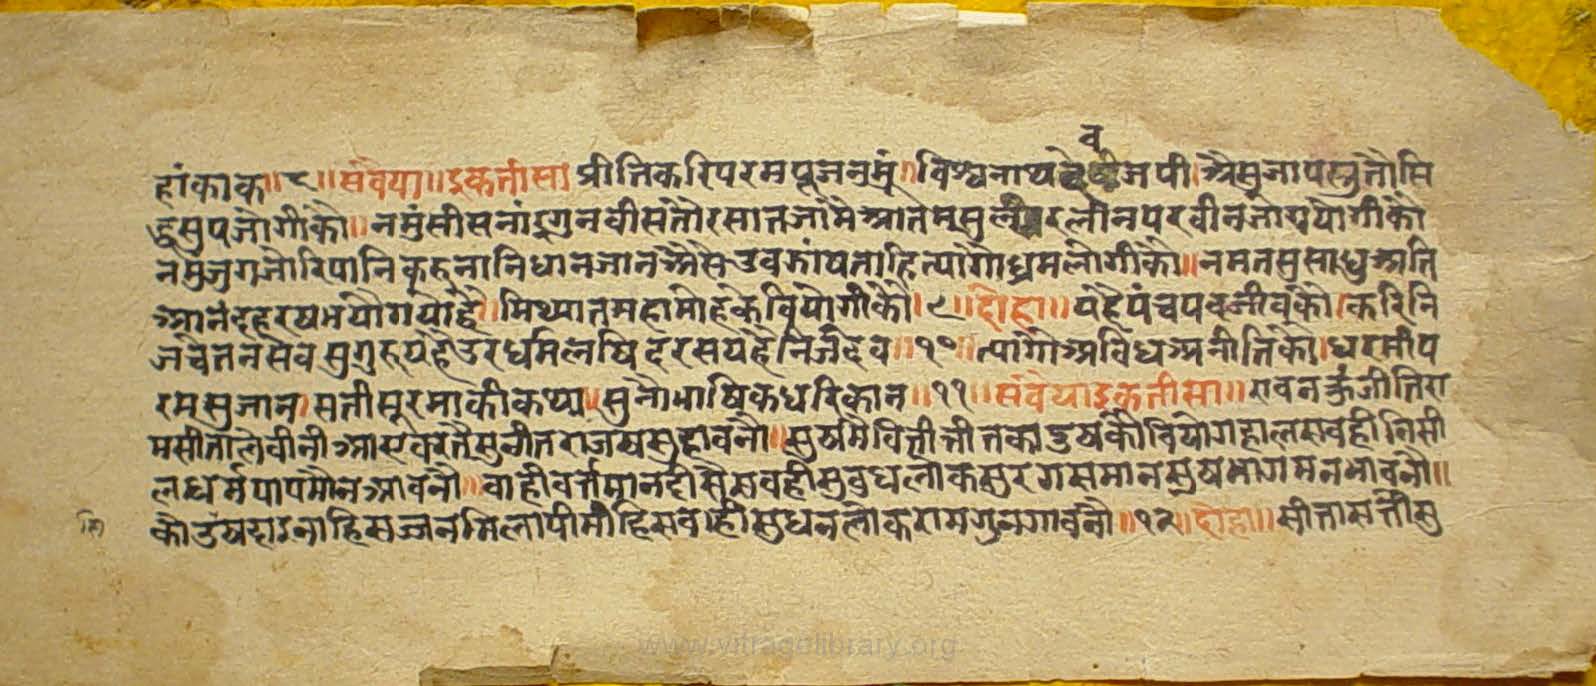 व
हांकाक॥८॥सवैया॥इकतीसा॥प्रीतिकरिपरमपूजनमुं॥विश्वनाथ जपी।अैसुजापस्तुतौसि
द्धसुपजोगीकौ॥नमुंसीसनांइगुनवीसतौरसातजामै लीनपरवीनजोगयोगीकौ
नमुंजुगजोरिपानिकरुनानिधानजानअैसेउवझांयताहित्यागीध्रमलोगीकौ॥नमतसुसाधुअति
आनंदहरषभयौगयौहै॥मिथ्यातमहामोहकेवियोगीकौ।९॥दौहा॥यहैपंचपदजीवकौ।करिनि
जचेतनसेवसुगुरुयहैउरधर्मलषिदरसयहैनिजदेव॥१०॥त्यागौअविधअनीतिकौ।धरमीप
रमसुजान।सतीसूरमाकीकथा॥सुनौभाषिकधरिकान॥११॥सवैयाइकतीसा॥रावनकुंजीतिरा
मसीता सुनीतराजयसुहावनौ॥सुषमै दुषकौवियोग हीतिसी
लधर्मपापमौनआवनौ॥वाहीवर्त्तमान सवहीसुवुधलोकसुरगसमानसुषभोगमनभावनौ॥
कौउ नाहिसज्जनमिलापीमांहिसव।हीसुधनलोकरामगुनगावनौ॥१२॥दोहा॥सीतासतीसु
www.vitragelibrary.org